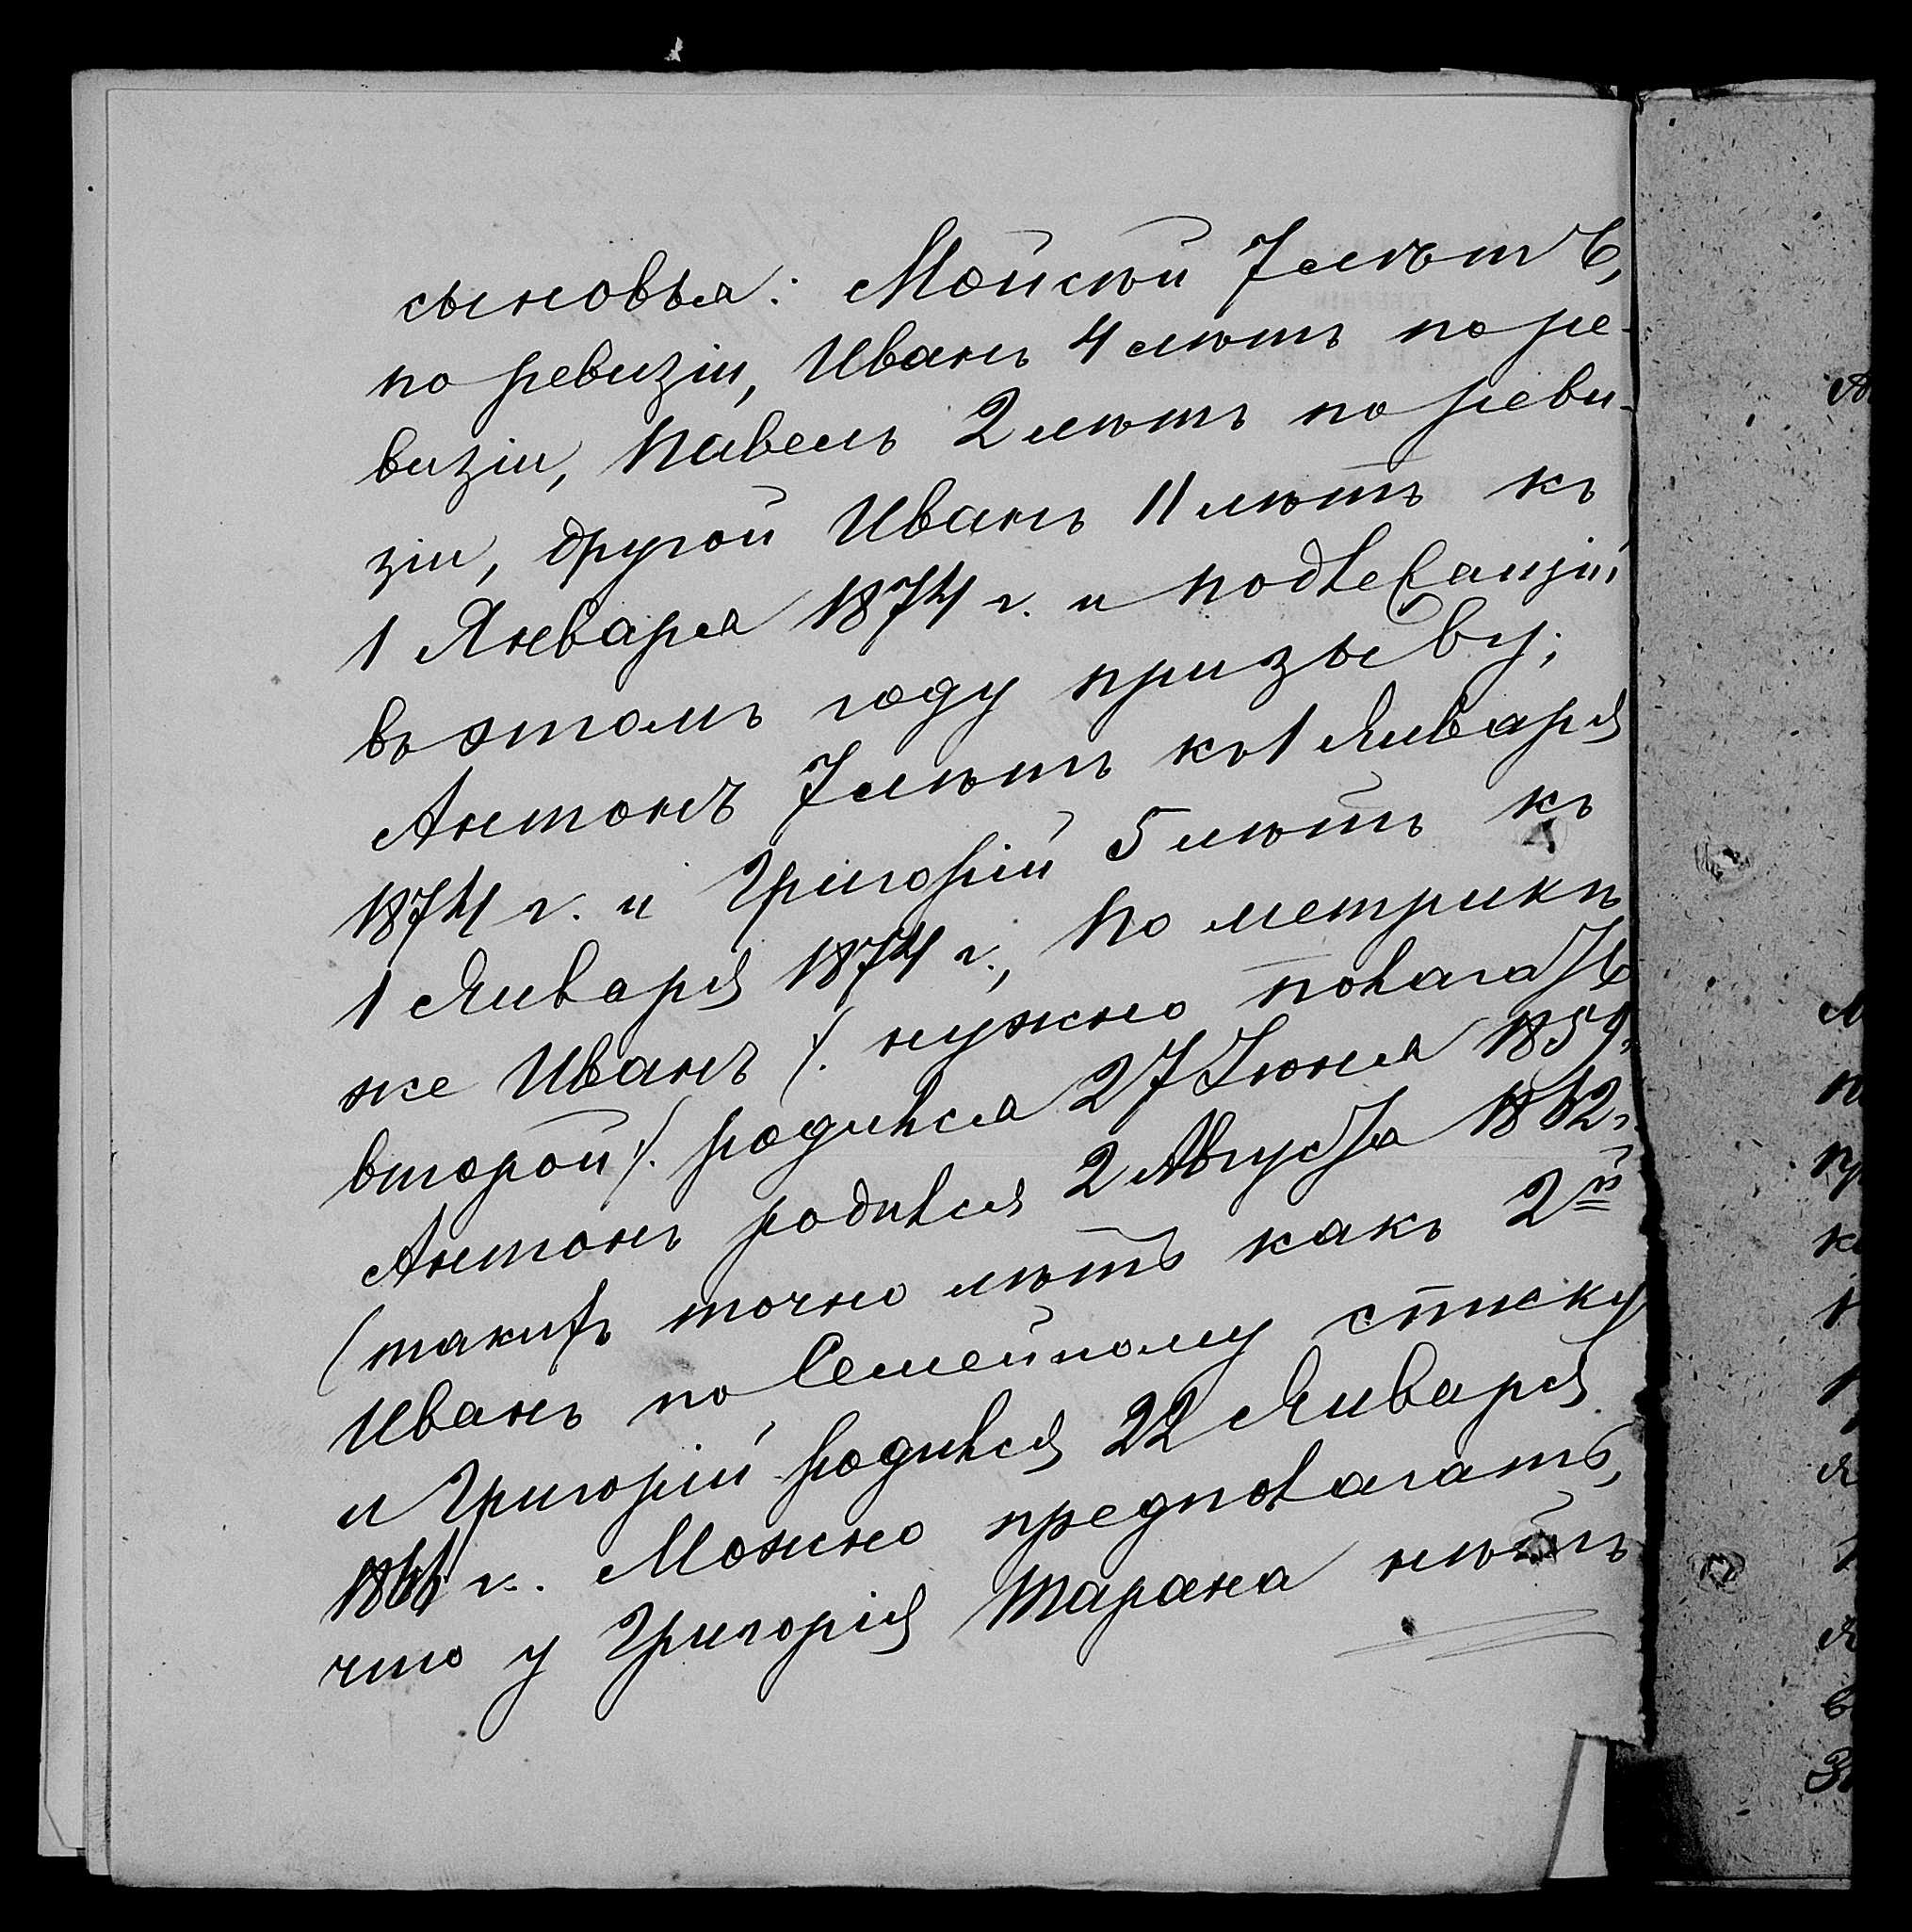 сыновья: Мойсей 7 лѣтъ,
по ревизіи, Иванъ 4 лѣтъ по ре-
визіи, Павелъ 2 лѣтъ по реви-
зіи, другой Иванъ 11 лѣтъ къ
1 Января 1874 г. и подлежащій
въ этомъ году призыву;
Антонъ 7 лѣтъ къ 1 Января
1874 г. и Григорій 5 лѣтъ къ
1 Января 1874 г., По метрикѣ
же Иванъ (. нужно полагать
второй). родился 27 Іюня 1859 г.
Антонъ родился 2 Августа 1862 г.
(такихъ точно лѣтъ какъ 2й
Иванъ по Семейному списку
и Григорій родился 22 Января
1866 г. Можно предполагать,
что у Григорія Тарана нѣтъ